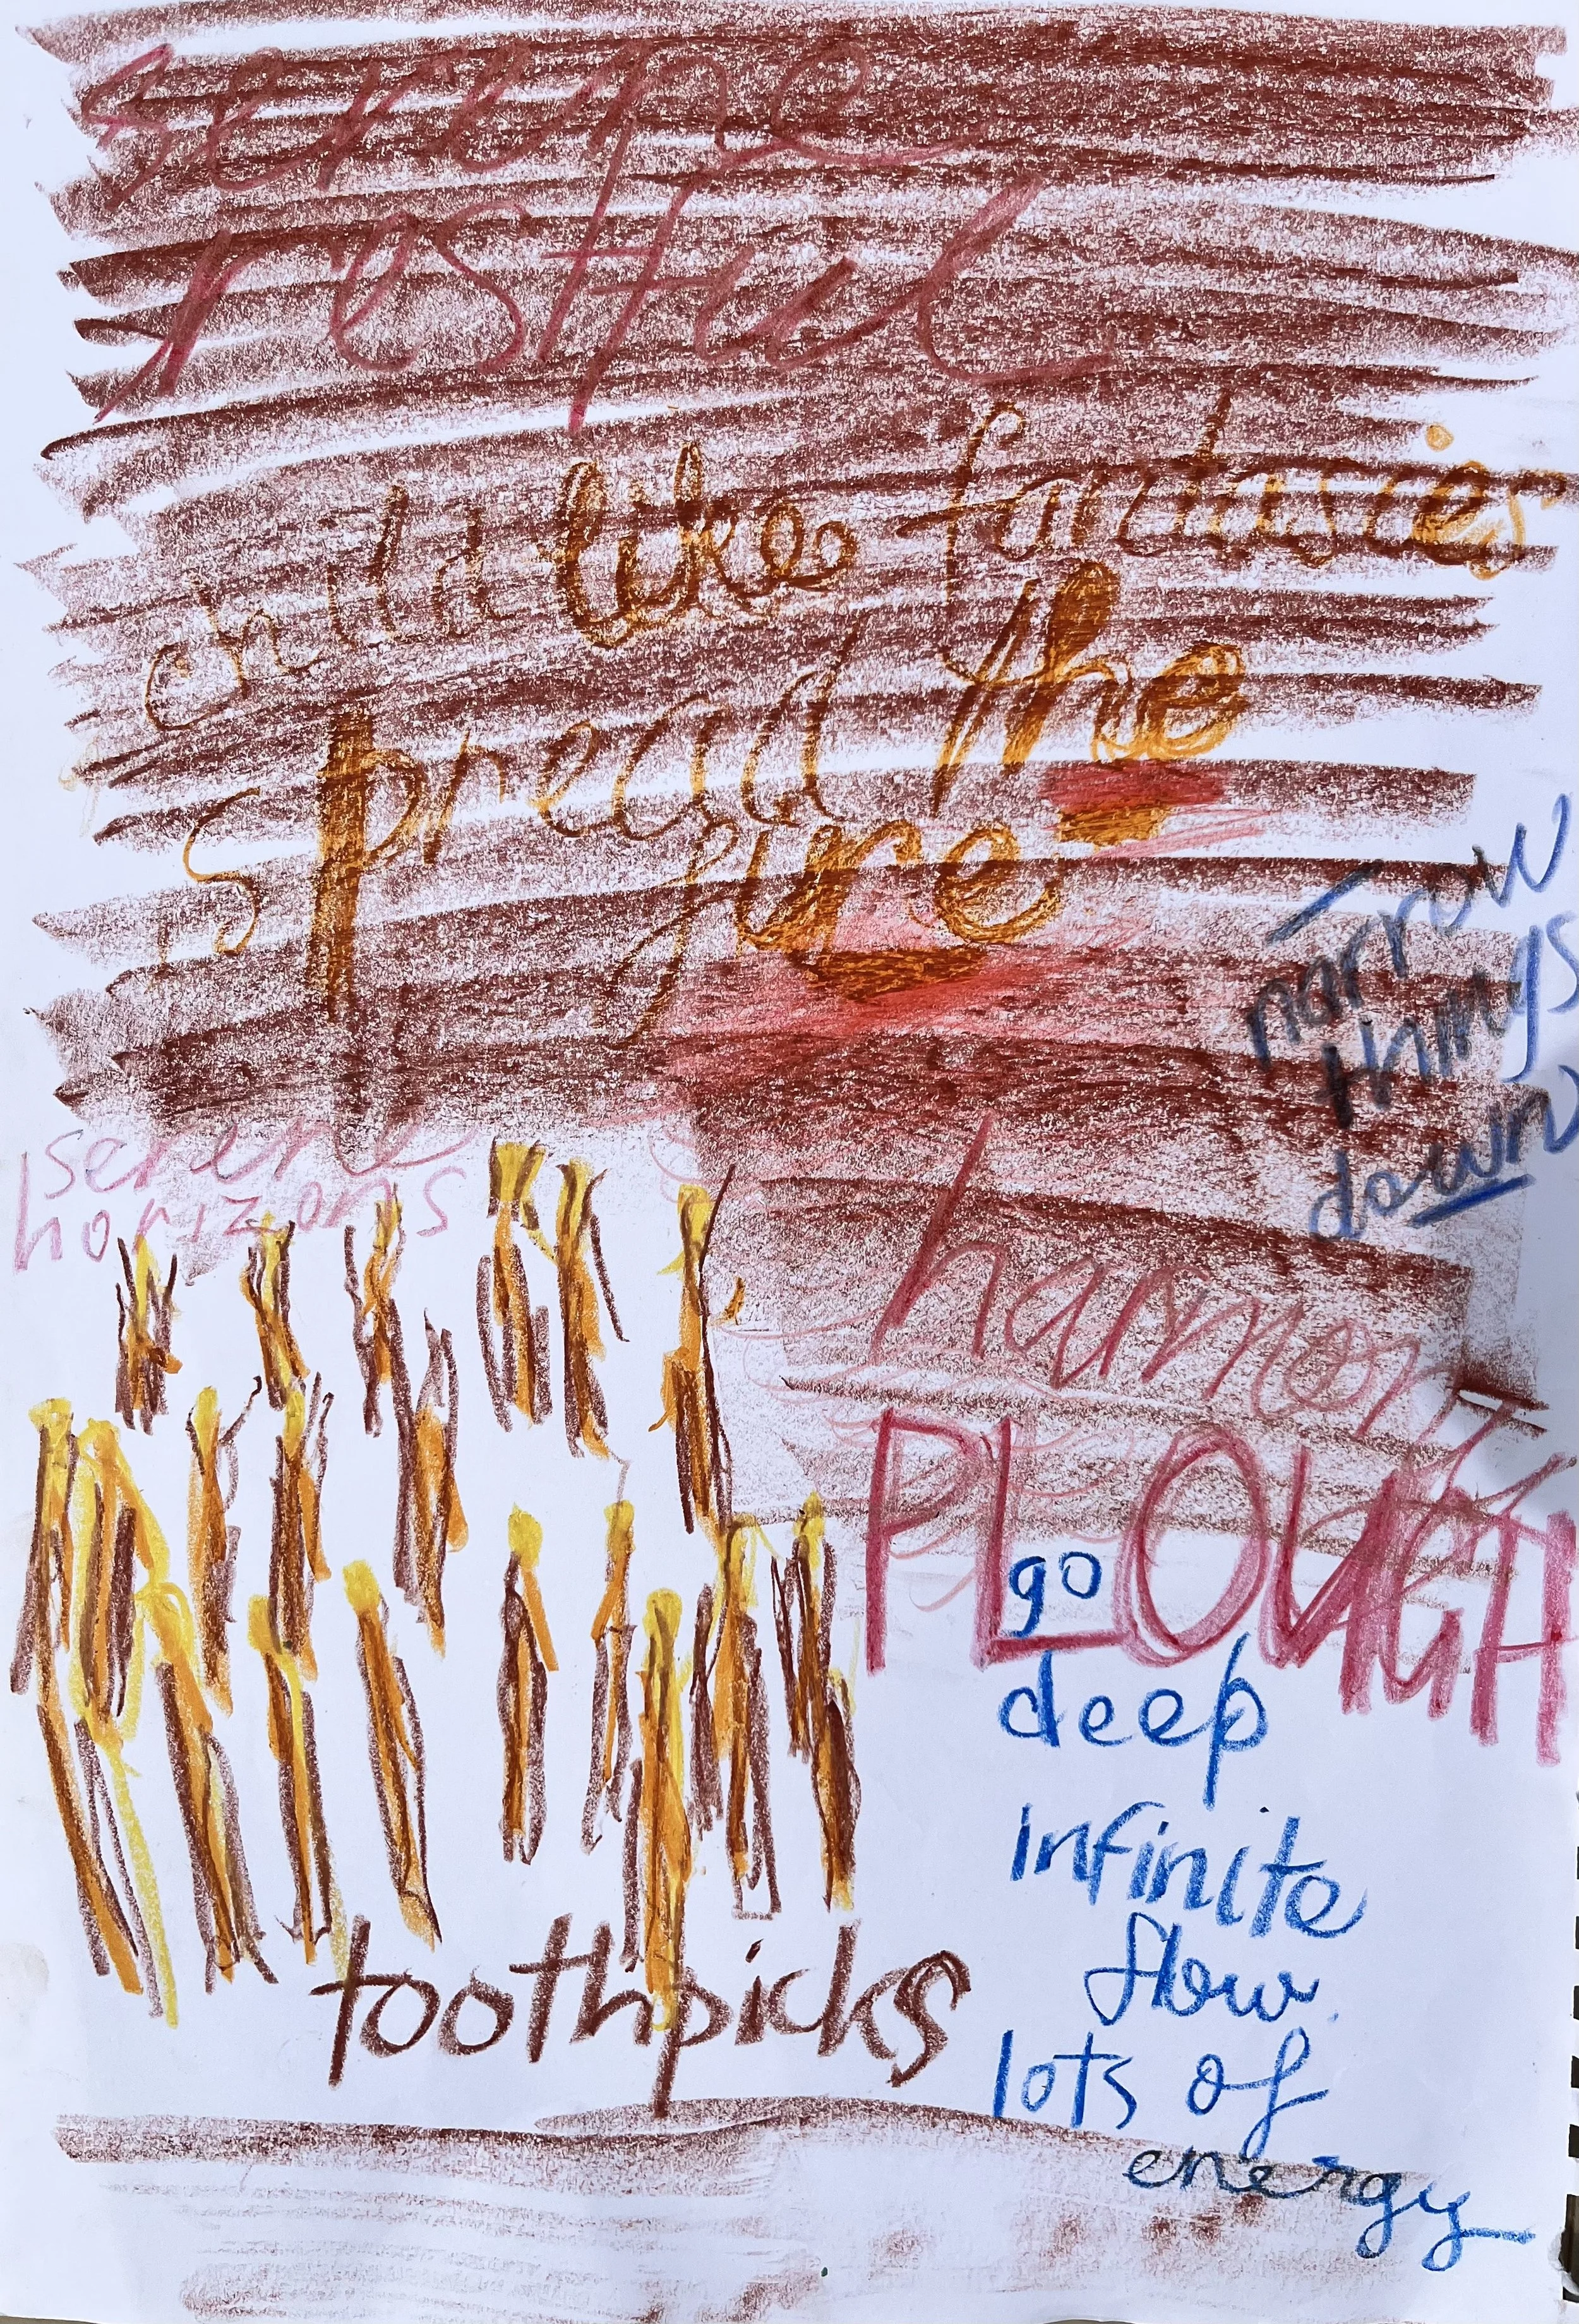 serene
restful
childlike fantasies
spread the
fire
narrow
things
down
serene
horizons
harmony
PLOUGH
go
deep
infinite
flow.
lots of
energy
toothpicks